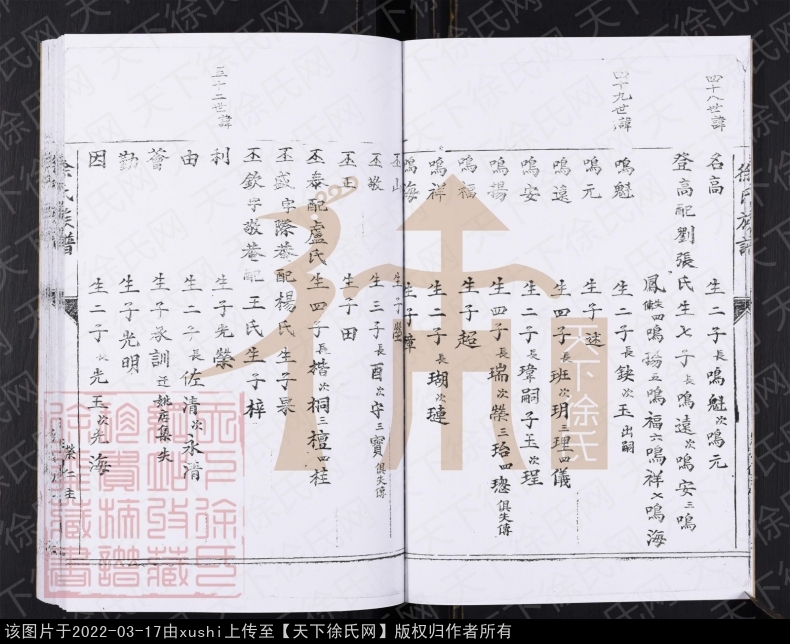 徐氏族譜
四十八世諱
名高 生二子長鳴魁次鳴元
登高配劉張氏生七子長鳴遠次鳴安三鳴
鳳失傳四鳴揚五鳴福六鳴祥七鳴海
四十九世諱
鳴魁 生二子長鈌次玉出嗣
鳴元 生子
鳴遠 生四子長班次玥三理四儀
鳴安 生二子長瑋嗣子玉次珵
鳴揚 生四子長瑞次榮三珆四璁俱失傳
鳴福 生子超
鳴祥 生二子長瑚次璉
鳴海 生子
丕山 生子
丕敬 生三子長酉次守三寶俱失傳
丕正 生子田
丕泰配盧氏生四子長楷次桐三檀四桂
丕盛字際菴配楊氏生子杲
丕欽字敬菴配王氏生子梓
五十二世諱
利 生子光榮
由 生二子長佐清次永清
薈 生子承訓迁姚店集失
勤 生子光明
因 生二子長光玉次光海
徐氏族譜
天下徐氏
天下徐氏网
该图片于2022-03-17由xushi上传至【天下徐氏网】版权归作者所有